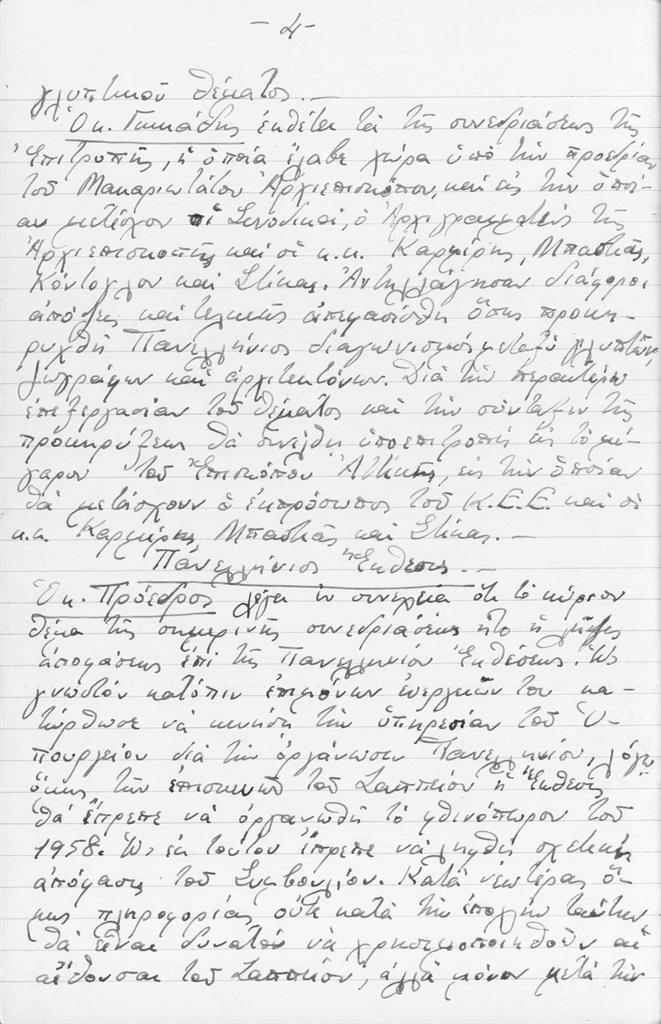 - 4 -
γλυπτικοῦ θέματος.-
Ὁ κ. Γκικάδης ἐκθέτει τὰ τῆς συνεδριάσεως τῆς
Ἐπιτροπῆς, ἡ ὁποία ἔλαβε χώρα ὑπὸ τὴν προεδρίαν
τοῦ Μακαριωτάτου Ἀρχιεπισκόπου, καὶ εἰς τὴν ὁποί-
αν μετεῖχον οἱ Συνοδικοί, ὁ Ἀρχιγραμματεὺς τῆς
Ἀρχιεπισκοπῆς καὶ οἱ κ.κ. Καρμίρης, Μπαστιᾶς,
Κόντογλου καὶ Στίκας. Ἀντηλλάγησαν διάφοροι
ἀπόψεις καὶ τελικῶς ἀπεφασίσθη ὅπως προκη-
ρυχθῇ Πανελλήνιος διαγωνισμὸς μεταξὺ γλυπτῶν,
ζωγράφων καὶ ἀρχιτεκτόνων. Διὰ τὴν περαιτέρω
ἐπεξεργασίαν τοῦ θέματος καὶ τὴν σύνταξιν τῆς
προκηρύξεως θὰ συνέλθῃ ὑποεπιτροπὴ εἰς τὸ μέ-
γαρον τοῦ Ἐπισκόπου Ἀττικῆς, εἰς τὴν ὁποίαν
θὰ μετάσχουν ὁ ἐκπρόσωπος τοῦ Κ.Ε.Ε. καὶ οἱ
κ.κ. Καρμίρης, Μπαστιᾶς καὶ Στίκας.-
Πανελλήνιος Ἔκθεσις.-
Ὁ κ. Πρόεδρος λέγει ἐν συνεχείᾳ ὅτι τὸ κύριον
θέμα τῆς σημερινῆς συνεδριάσεως ἦτο ἡ λῆψις
ἀποφάσεως ἐπὶ τῆς Πανελληνίου Ἐκθέσεως. Ὡς
γνωστὸν κατόπιν ἐπιμόνων ἐνεργειῶν του κα-
τώρθωσε νὰ κινήσῃ τὴν ὑπηρεσίαν τοῦ Ὑ-
πουργείου διὰ τὴν ὀργάνωσιν Πανελληνίου, λόγῳ
ὅμως τῶν ἐπισκευῶν τοῦ Ζαππείου ἡ Ἔκθεσις
θὰ ἔπρεπε νὰ ὀργανωθῇ τὸ φθινόπωρον τοῦ
1958. Ὡς ἐκ τούτου ἔπρεπε νὰ ληφθῇ σχετικὴ
ἀπόφασις τοῦ Συμβουλίου. Κατὰ νεωτέρας ὅ-
μως πληροφορίας οὔτε κατὰ τὴν ἐποχὴν ταύτην
θὰ εἶναι δυνατὸν νὰ χρησιμοποιηθοῦν αἱ
αἴθουσαι τοῦ Ζαππείου, ἀλλὰ μόνον μετὰ τὴν